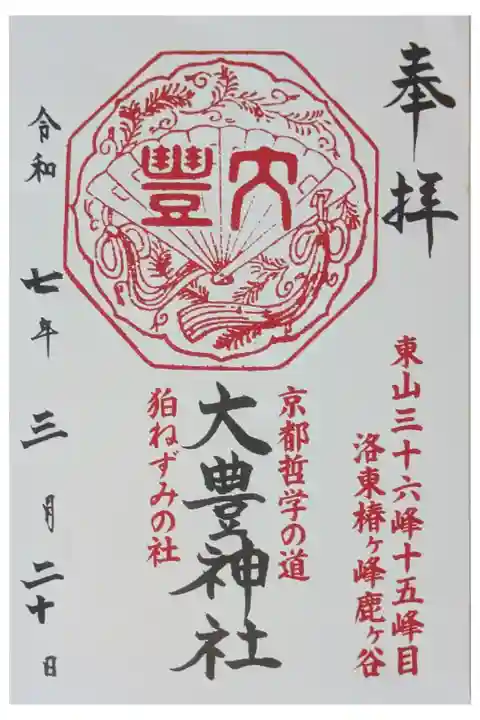 奉拝
東山三十六峰十五峰目
洛東椿ヶ峰鹿ヶ谷
大豐
京都哲学の道
大豊神社
狛ねずみの社
令和七年三月二十日